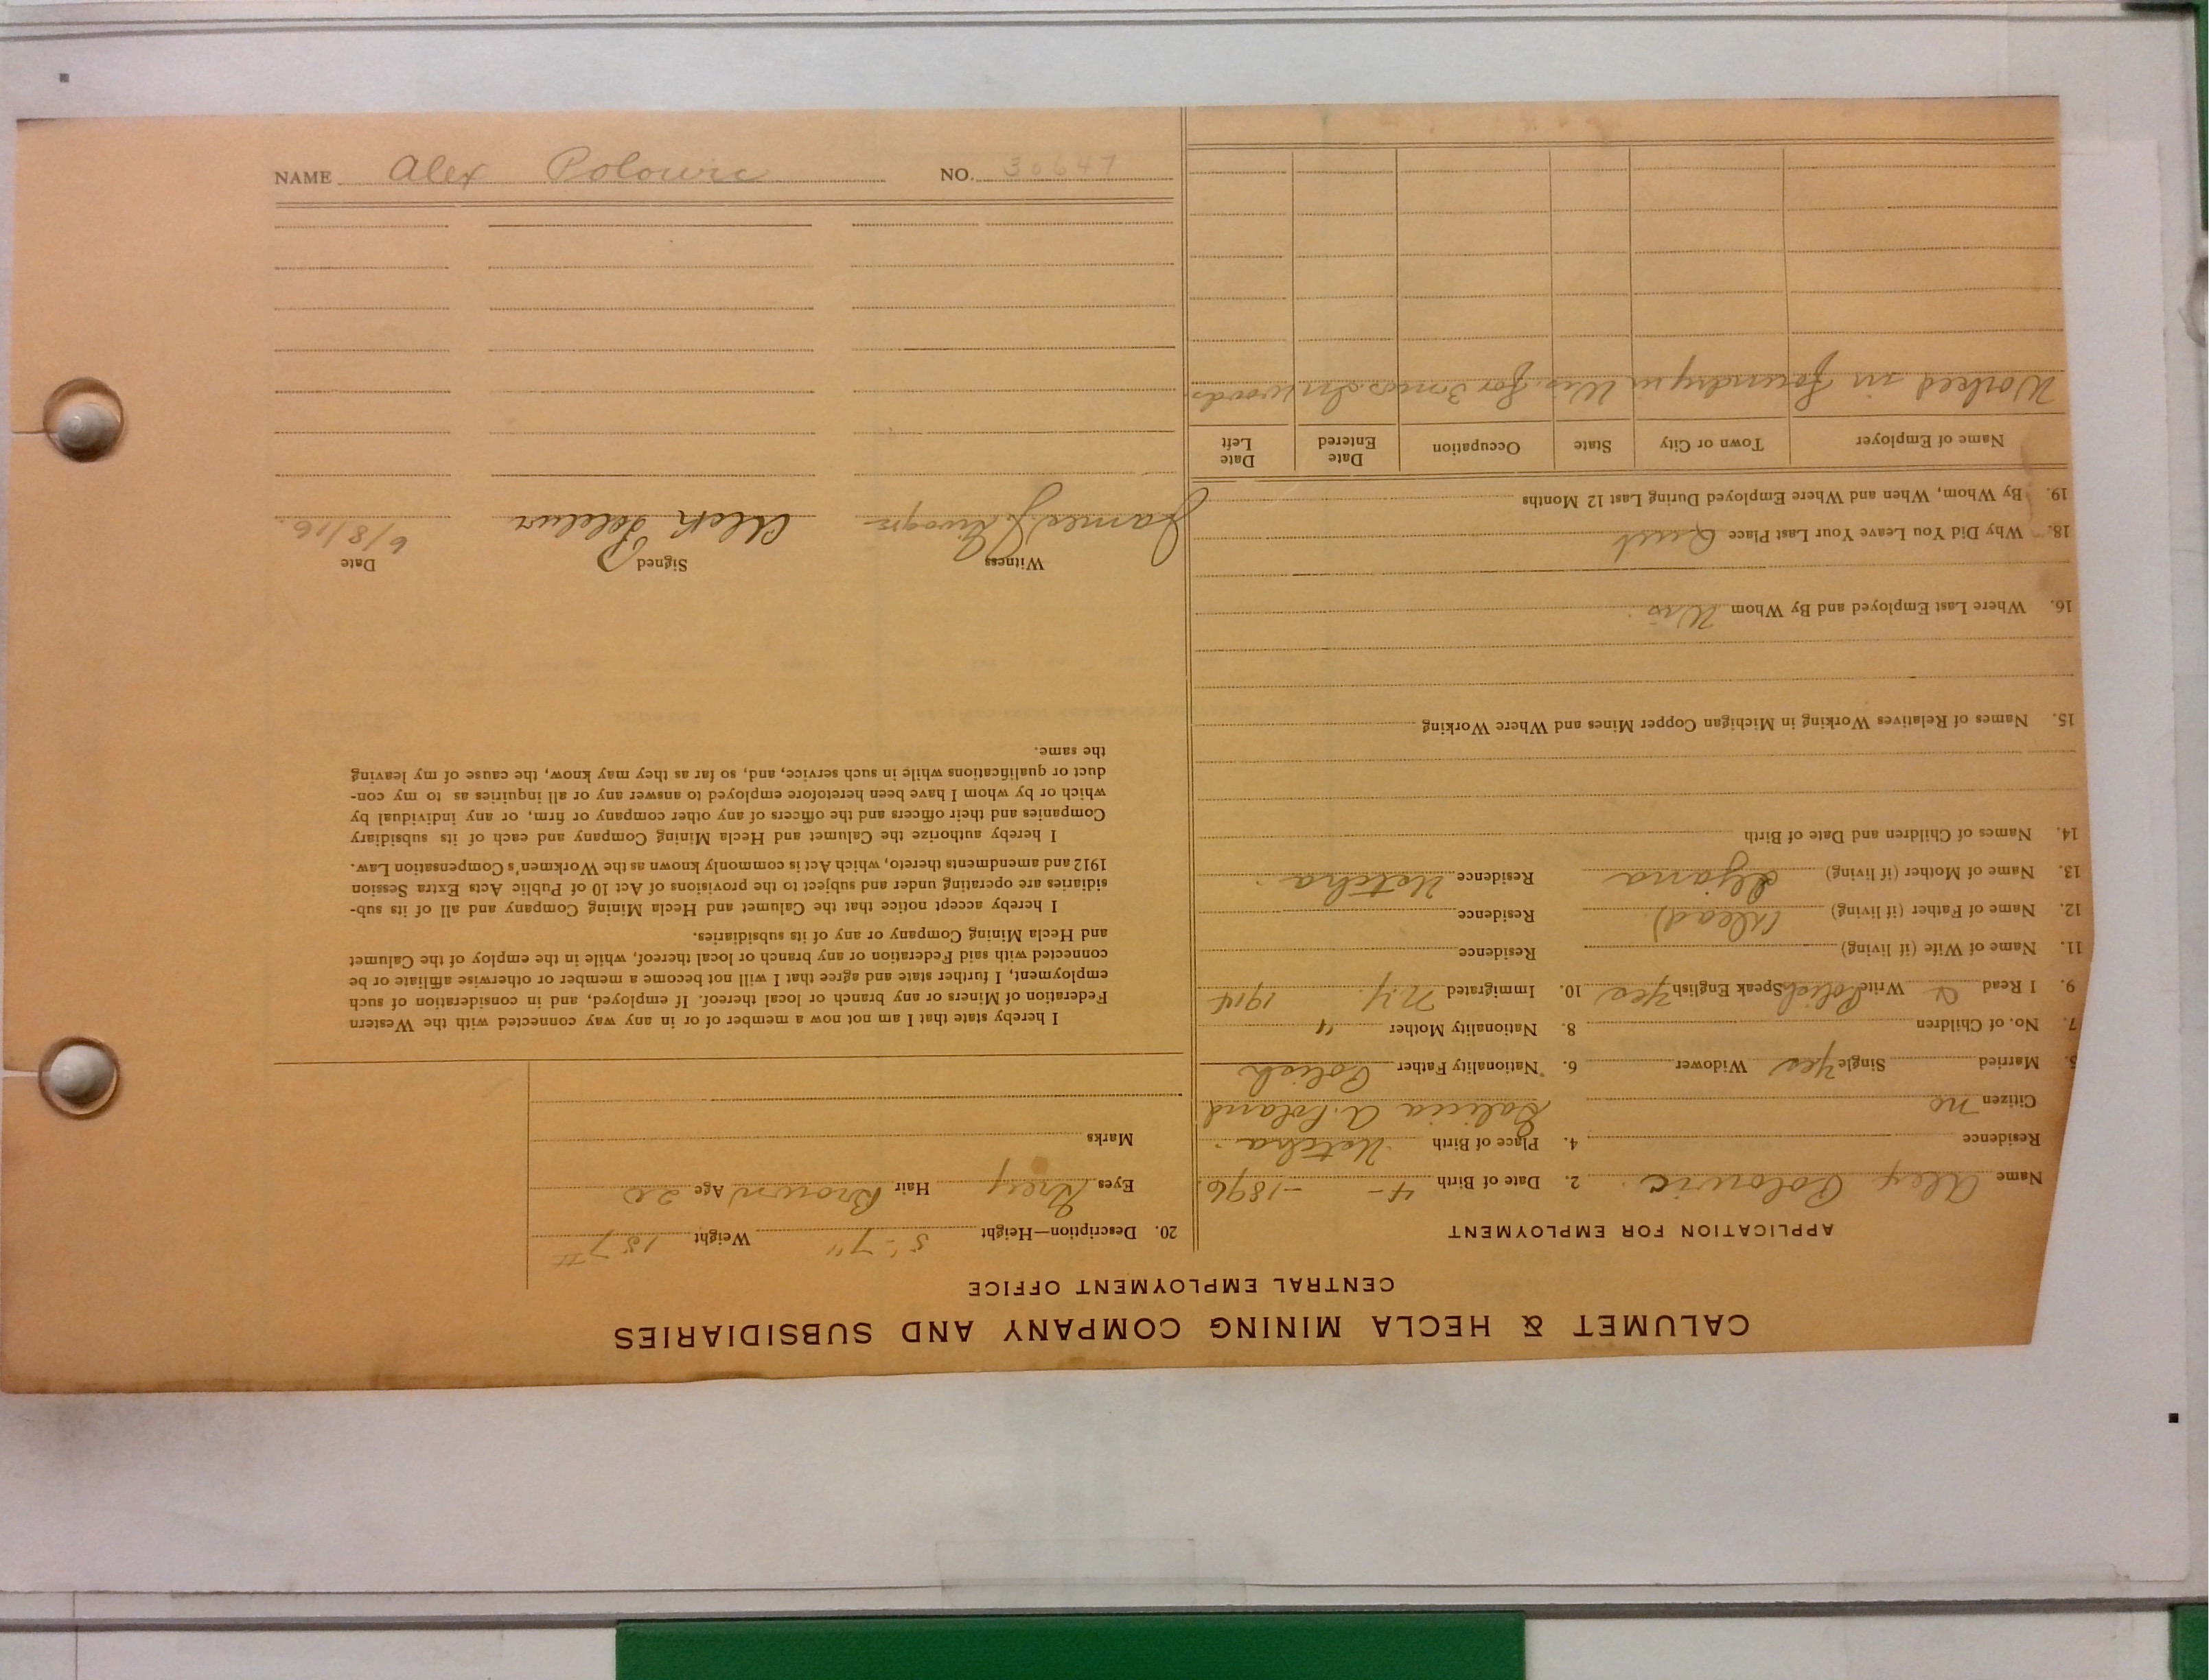 CALUMET & HECLA MINING COMPANY AND SUBSIDIARIES
CENTRAL EMPLOYMENT OFFICE
APPLICATION FOR EMPLOYMENT
Name Alex Polowic 2. Date of Birth 4 - - 1896
Residence 4. Place of Birth
Citizen no Galicia A. Poland
5. Married Single Yes Widower 6. Nationality Father Polish
7. No. of Children 8. Nationality Mother "
9. I Read & Write Polish Speak English Yes 10. Immigrated N.Y. 1914
11. Name of Wife (if living) Residence
12. Name of Father (if living) (Dead) Residence
13. Name of Mother (if living) Residence
14. Names of Children and Date of Birth
15. Names of Relatives Working in Michigan Copper Mines and Where Working
16. Where Last Employed and By Whom Wis.
18. Why Did You Leave Your Last Place Quit
19. By Whom, When and Where Employed During Last 12 Months
Name of Employer Town or City State Occupation Date Entered Date Left
Worked in foundry in Wis. for 3 mos. In woods
20. Description—Height 5'-7" Weight 157#
Eyes Grey Hair Brown Age 20
Marks
I hereby state that I am not now a member of or in any way connected with the Western
Federation of Miners or any branch or local thereof. If employed, and in consideration of such
employment, I further state and agree that I will not become a member or otherwise affiliate or be
connected with said Federation or any branch or local thereof, while in the employ of the Calumet
and Hecla Mining Company or any of its subsidiaries.
I hereby accept notice that the Calumet and Hecla Mining Company and all of its sub-
sidiaries are operating under and subject to the provisions of Act 10 of Public Acts Extra Session
1912 and amendments thereto, which Act is commonly known as the Workmen's Compensation Law.
I hereby authorize the Calumet and Hecla Mining Company and each of its subsidiary
Companies and their officers and the officers of any other company or firm, or any individual by
which or by whom I have been heretofore employed to answer any or all inquiries as to my con-
duct or qualifications while in such service, and, so far as they may know, the cause of my leaving
the same.
Witness Signed Date
James 6/8/16
NAME Alex Polowic NO. 30647